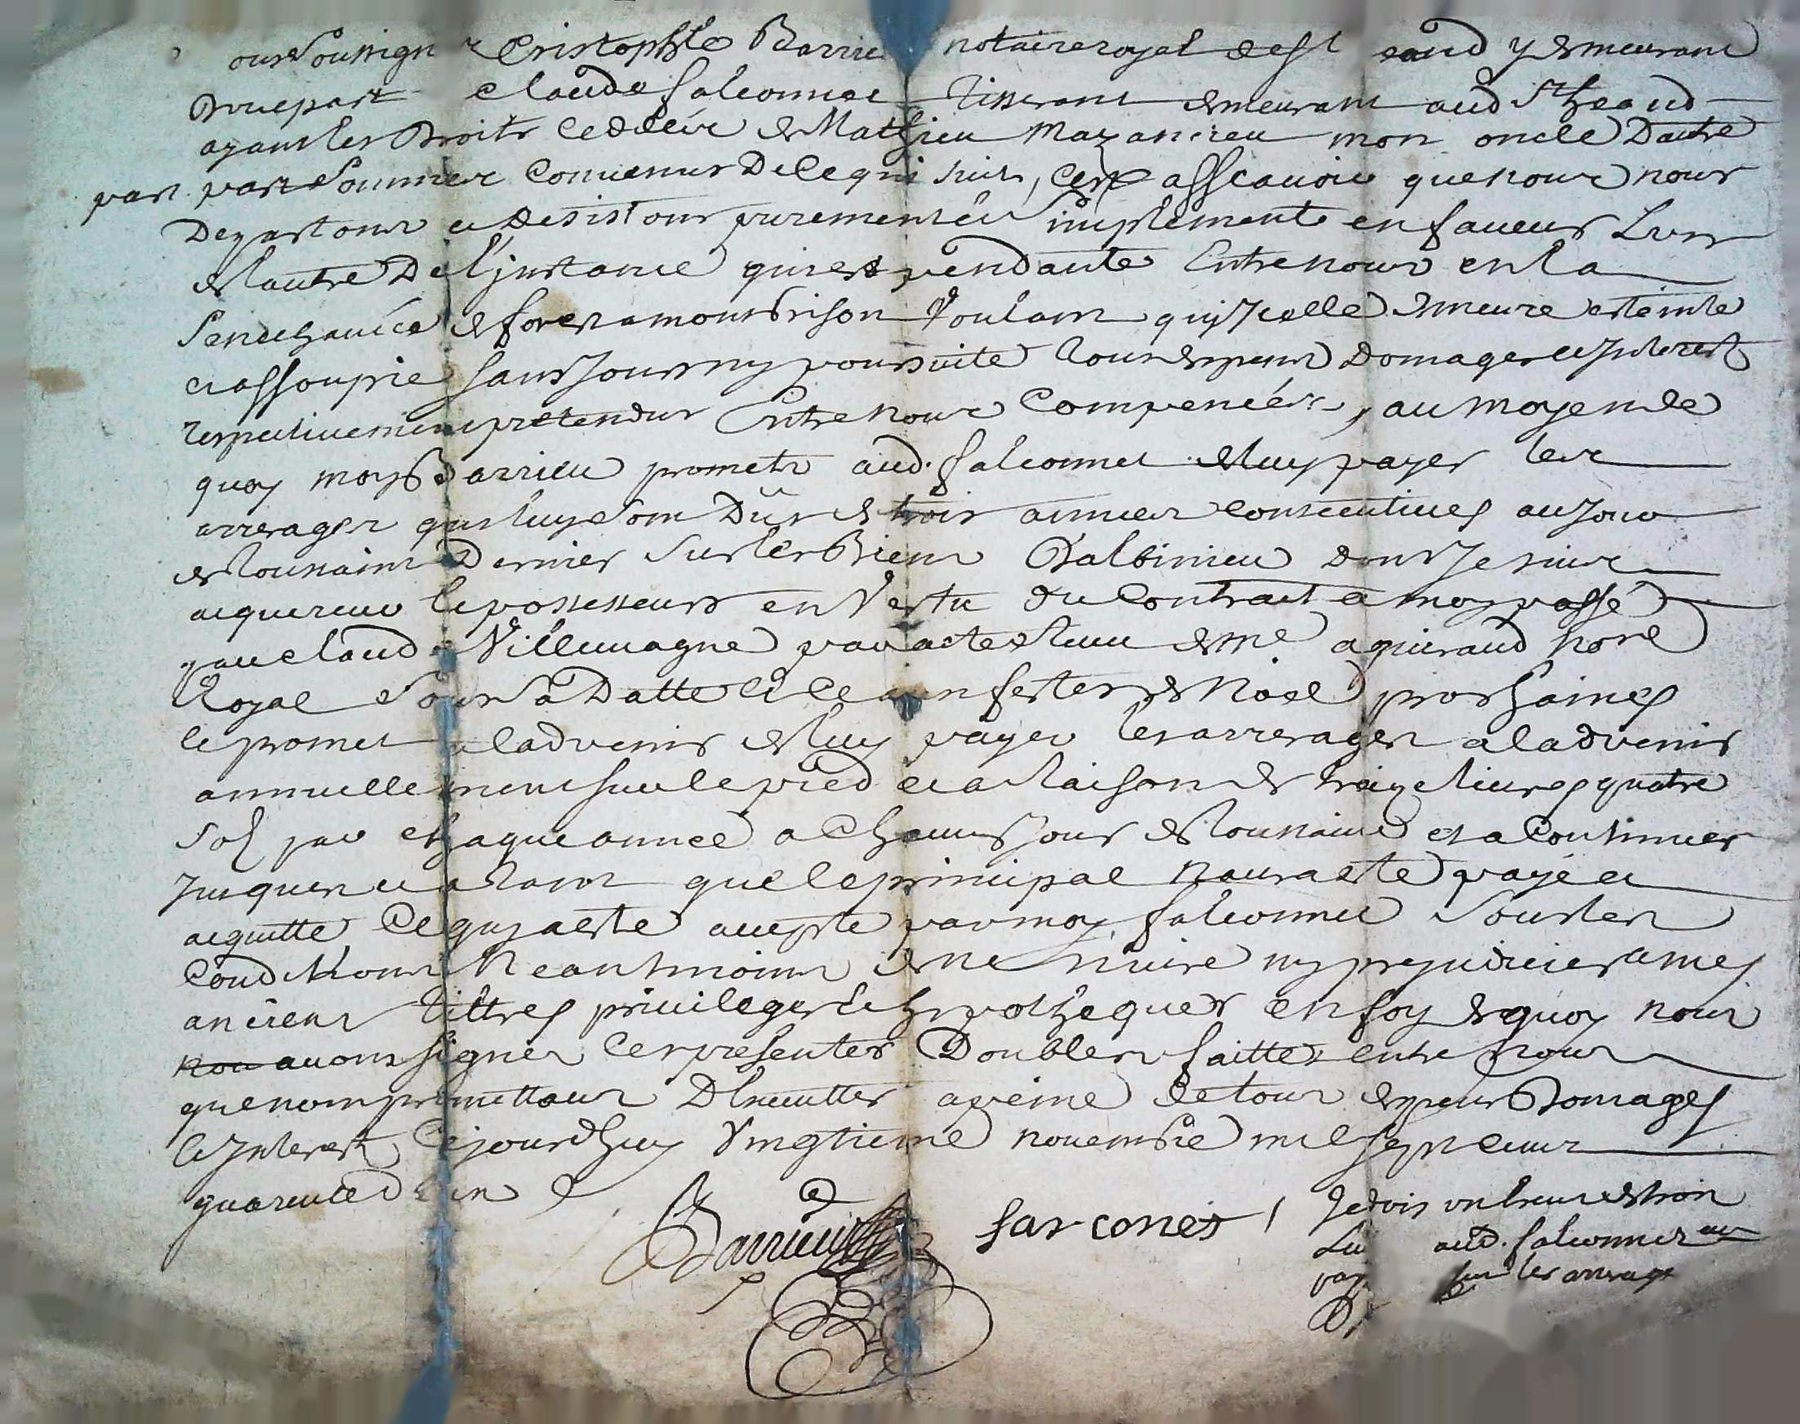 ous soussignez Cristophle Barrieu notaire royal de st heand y demeurant
D'une part Claude falconnet tisserant demeurant aud St heand
ayant les Droits ceddéz de Mathieu Mazancieu mon oncle D'autre
part part sommes convenus De ce qui suit, cest asscavoir que nous nous
Departons et desistons purement et simplement en faveur L'un
de l'autre De l'instance qui est pendante Entre nous en la
Senechaucée de forest a montbrison voulans qu'ycelle demeure esteinte
et assoupie sans y fournyr poursuite tous depens Domages et Interest
respectivement pretendus Entre nous compencés, au moyen de
quoy moy Barrieu promets aud. falconnet de luy payer les
arrerages qui luy sont Dûs de trois années consecutives au jour
de toussaint Dernier sur les Biens D'albinieu dont je suis
acquereur et possesseur en Vertu du Contract a moy passé
par claude Villemagne par acte reçu de me aguiraud nore
Royal sous sa Datte et ce aux festes de Noel prochaines
et promet a ladvenir de luy payer les arrerages a ladvenir
annuellement sur le pied et a Raison de treize livres quatre
sol par chaque année a chacun jour de toussaint et a Continuer
jusques et a tant que le principal naura esté payé et
acquitté Ce qui a esté accepté par moy falconnet sous les
Conditions Neantmoins de ne nuire ny prejudicier a mes
anciens tiltres privileges et hypotheques en foy de quoy nous
nou avons signéz ces presentes Doubles faittes entre nous
que nous promettons D'executter a peine de tous depens Domages
et Interest, Cejourdhuy Vingtieme novembre mil sept cens
quarente et un
Barrieu
farconet
Je dois un livre de trois
aud. falconnet
sur les arrerages